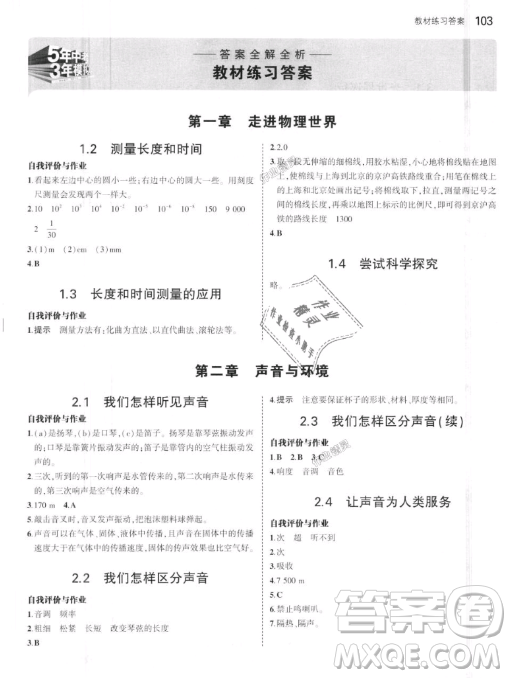 教材练习答案 103
5年中考
3年模拟
答案全解全析
教材练习答案
第一章 走进物理世界
1.2 测量长度和时间
自我评价与作业
1.看起来左边中心的圆小一些;右边中心的圆大一些。用刻度
尺测量会发现两个一样大。
3.(1)m (2)m (3)cm
4.B
1.3 长度和时间测量的应用
自我评价与作业
1.提示 测量方法有:化曲为直法、以直代曲法、滚轮法等。
2.2.0
3.取一段无伸缩的细棉线,用胶水粘湿,小心地将棉线与地图
上的京沪高铁路线重合;用笔在棉线与地图上的上海和北
京处做出标记,将棉线拉直后用刻度尺量出上海与北京之
间的长度,对照地图上标示的比例尺,即可算出京沪高
铁的路线长度 1300
1.4 尝试科学探究
略。
第二章 声音与环境
2.1 我们怎样听见声音
自我评价与作业
1.(a)是扬琴,(b)是口琴,(c)是笛子。扬琴靠琴弦振动发声
的;口琴是靠簧片振动发声的;笛子是靠内部的空气柱振动发
声的。
2.三次,听到的第一次响声是水管传来的,第二次响声是水传
来的,第三次响声是空气传来的。
3.170 m 4.A
5.敲击音叉时,音叉发生振动,把泡沫塑料球弹起。
6.声音可以在气体、液体、固体中传播,而且固体中传播的效
果比液体中传播的效果好,液体中传播的效果比空气好。
2.2 我们怎样区分声音
自我评价与作业
1.音调 频率
2.粗细 松紧 长短 改变琴弦的长度
3.B
4.提示 注意要保证杯子的形状,材料,厚度等相同。
2.3 我们怎样区分声音(续)
自我评价与作业
1.B 2.B 3.C
4.响度 音调 音色
2.4 让声音为人类服务
自我评价与作业
1.次 超 次
2.次
3.吸收
4.7 500 m
5.C
6.禁止鸣喇叭。
7.隔热、隔声。
作业
精灵
作业检查小助手
答案圈
MXQE.COM